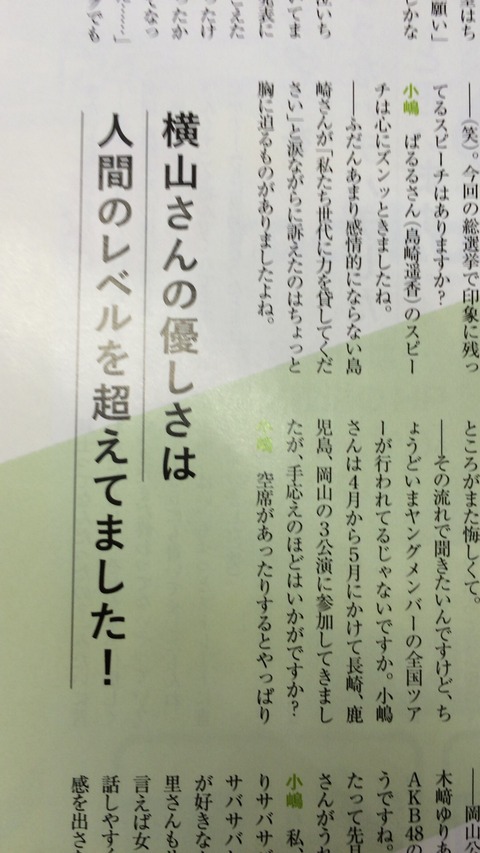 願い」
しかな
いてま
発表に
こえた
ったけ
ったか
てなっ
で……」
グでも
——(笑)。今回の総選挙で印象に残っ
てるスピーチはありますか?
小嶋 ぱるるさん(島崎遥香)のスピー
チは心にズンッときましたね。
——ふだんあまり感情的にならない島
崎さんが「私たち世代に力を貸してくだ
さい」と涙ながらに訴えたのはちょっと
胸に迫るものがありましたよね。
横山さんの優しさは
人間のレベルを超えてました!
ところがまた悔しくて。
——その流れで聞きたいんですけど、ち
ょうどいまヤングメンバーの全国ツア
ーが行われてるじゃないですか。小嶋
さんは4月から5月にかけて長崎、鹿
児島、岡山の3公演に参加してきまし
たが、手応えのほどはいかがですか?
小嶋 空席があったりするとやっぱり
——岡山公
木﨑ゆりあ
AKB48の
うですね。
たって先月
さんがうれ
小嶋 私、
りサバサバ
サバサバし
が好きな
里さんもサ
言えば女
話しやすく
感を出さな